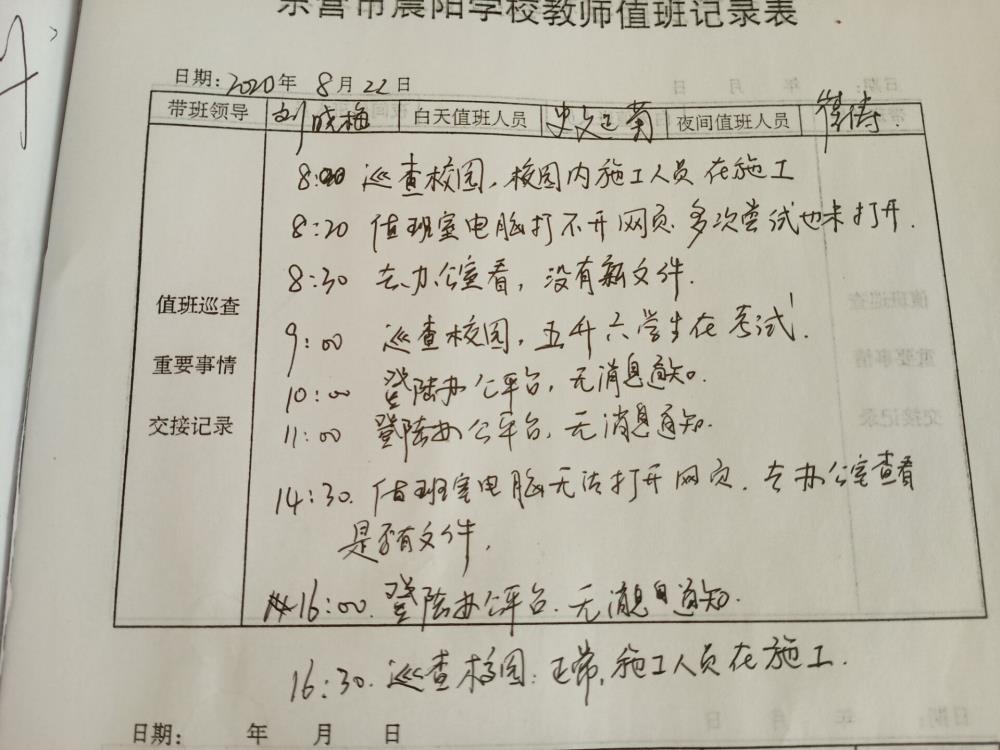 东营市晨阳学校教师值班记录表
日期：2020年 8月22日
带班领导 刘晓梅 白天值班人员 史文菊 夜间值班人员 崔涛.
值班巡查
重要事情
交接记录
8:00 巡查校园，校园内施工人员在施工
8:20 值班室电脑打不开网页.多次尝试也未打开.
8:30 去办公室看，没有新文件.
9:00 巡查校园，五升六学生在考试!
10:00 登陆办公平台，无消息通知.
11:00 登陆办公平台，无消息通知.
14:30. 值班室电脑无法打开网页.去办公室查看
是否有文件，
16:00. 登陆办公平台.无消息通知.
16:30. 巡查校园：正常，施工人员在施工.
日期： 年 月 日